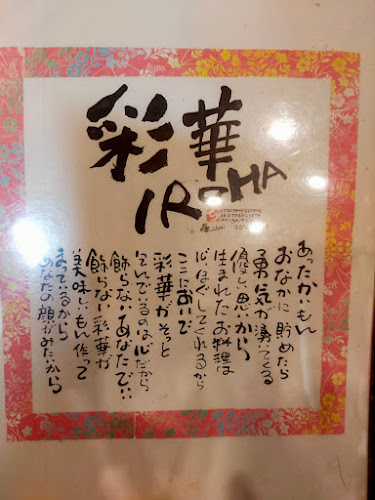 彩華
IROHA
あったかいもん
おなかに貯めたら
勇気が湧いてくる
優しい思いから
生まれたお料理は
心ほぐしてくれるから
ここにおいで
彩華がそっと
包んでいるのは心だから
飾らないあなたで…
飾らない彩華が
美味しいもん作って
まっているから
あなたの顔がみたいから